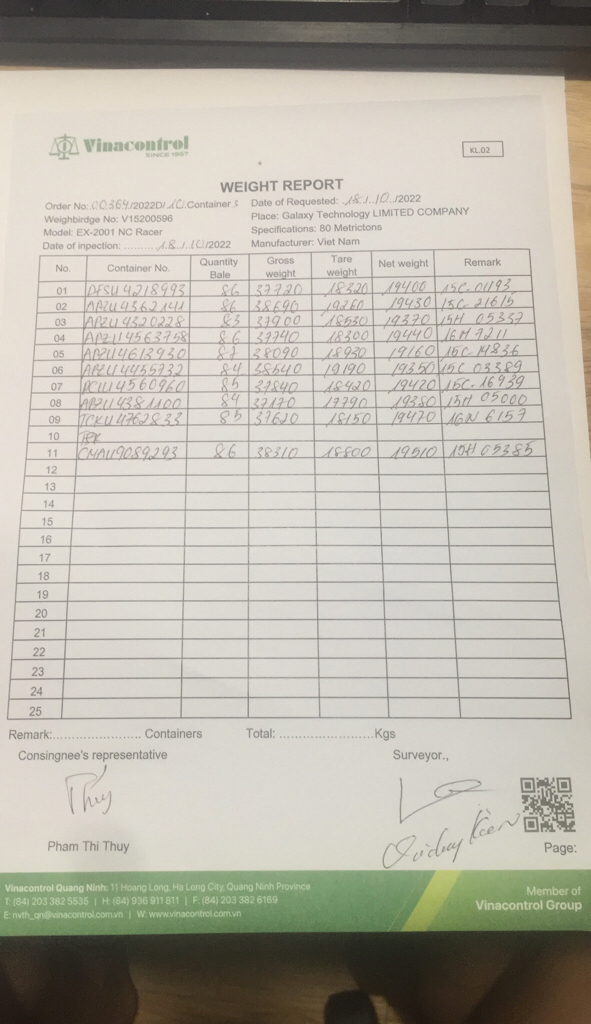 Vinacontrol
SINCE 1957
KL.02
WEIGHT REPORT
Order No: 00364/2022D/10 Containers Date of Requested: 18/10/2022
Weighbirdge No: V15200596 Place: Galaxy Technology LIMITED COMPANY
Model: EX-2001 NC Racer Specifications: 80 Metrictons
Date of inpection: ......... 18/10/2022 Manufacturer: Viet Nam
No. Container No. Quantity Bale Gross weight Tare weight Net weight Remark
01 DFSU4218993 86 37720 18320 19400 15C-01193
02 APZU4362141 86 38690 19260 19430 15C-21615
03 APZU4320228 83 37900 18530 19370 15H 05337
04 APZU4563758 86 37740 18300 19440 16H 7211
05 APZU4613930 87 38090 18930 19160 15C 14836
06 4455732 84 38540 19190 19350 15C 03389
07 4560960 85 37840 18420 19420 15C-16939
08 APZU4381100 84 37170 17790 19380 15H 05000
09 TCKU4762833 85 37620 18150 19470 16N 6157
10
11 CMAU9089293 86 38310 18800 19510 15H 05385
12
13
14
15
16
17
18
19
20
21
22
23
24
25
Remark:........................ Containers Total: ........................Kgs
Consingnee's representative Surveyor.,
Thuy
Pham Thi Thuy
Page:
Vinacontrol Quang Ninh: 11 Hoang Long, Ha Long City, Quang Ninh Province
T: (84) 203 382 5535 | H: (84) 936 911 811 | F: (84) 203 382 6169
E: nvth_qn@vinacontrol.com.vn | W: www.vinacontrol.com.vn
Member of
Vinacontrol Group